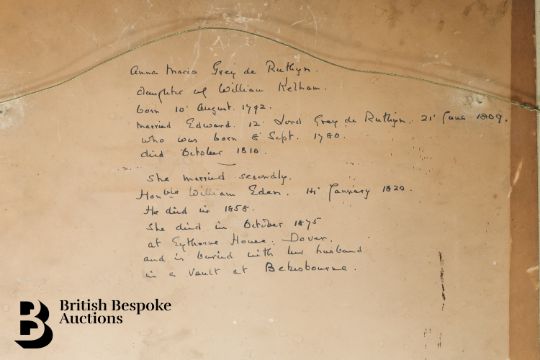 Anna Maria Grey de Ruthyn.
daughter of William Kelham.
born 10th August. 1792.
married Edward. 12th Lord Grey de Ruthyn. 21st June 1809.
who was born 8 Sept. 1780.
died October 1810.
She married secondly.
Honble William Eden. 14th January 1820.
He died in 1858.
She died in October 1875
at Eythorne House. Dover.
and is buried with her husband
in a vault at Bekesbourne.
British Bespoke
Auctions